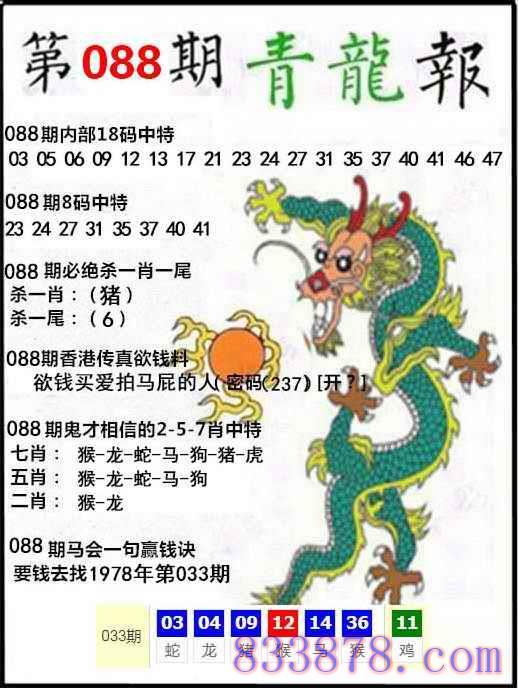 第088期青龍報
088期内部18码中特
03 05 06 09 12 13 17 21 23 24 27 31 35 37 40 41 46 47
088期8码中特
23 24 27 31 35 37 40 41
088 期必绝杀一肖一尾
杀一肖：（猪）
杀一尾：（6）
088期香港传真欲钱料
欲钱买爱拍马屁的人（密码(237）[开？]
088期鬼才相信的2-5-7肖中特
七肖： 猴-龙-蛇-马-狗-猪-虎
五肖： 猴-龙-蛇-马-狗
二肖： 猴-龙
088 期马会一句赢钱诀
要钱去找1978年第033期
033期 03 04 09 12 14 36 11
蛇 龙 猪 猴 马 猴 鸡
833878.com